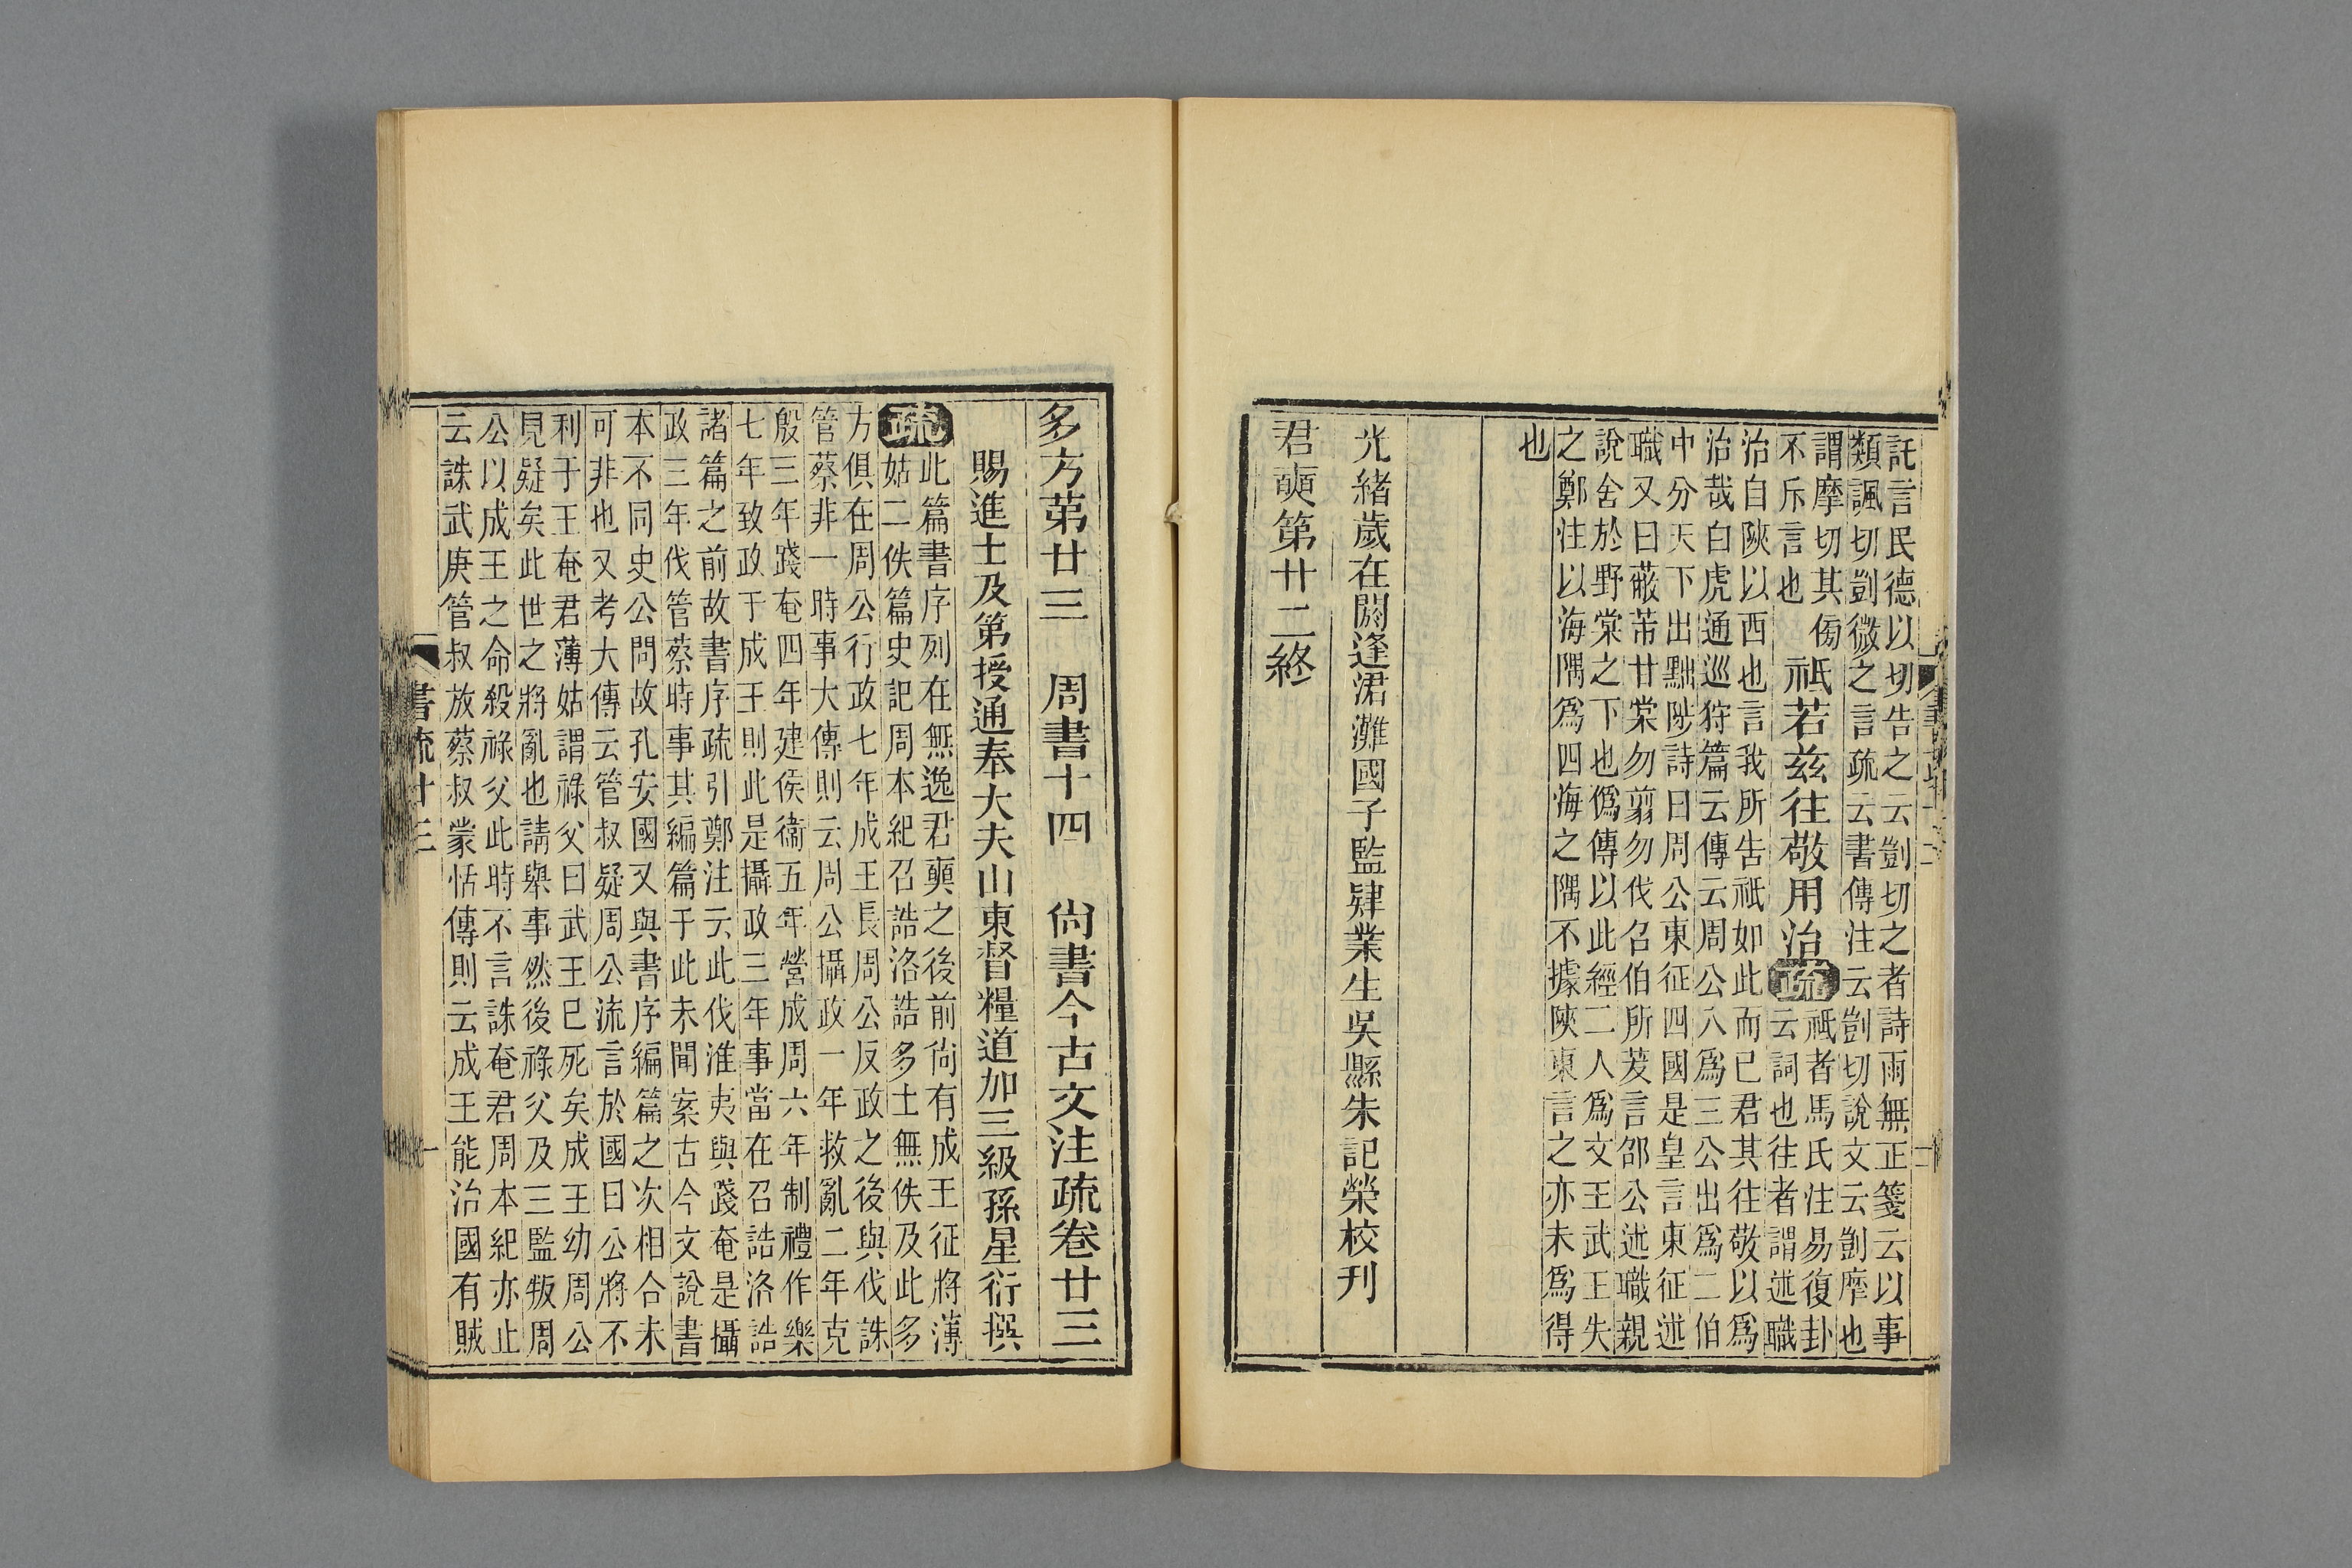 託言民德以切告之云剴切之者詩雨無正箋云以事
類諷切剴微之言疏云書傳注云剴切說文云剴摩也
謂摩切其傍
不斥言也
祗若茲往敬用治
疏
祗者馬氏注易復卦
云詞也往者謂述職
治自陝以西也言我所告祗如此而已君其往敬以爲
治哉白虎通巡狩篇云傳云周公八爲三公出爲二伯
中分天下出黜陟詩曰周公東征四國是皇言東征述
職又曰蔽芾甘棠勿翦勿伐召伯所茇言邵公述職親
說舍於野棠之下也僞傳以此經二人爲文王武王失
之鄭注以海隅爲四海之隅不據陝東言之亦未爲得
也
光緒歲在閼逢涒灘國子監肄業生吳縣朱記榮校刊
君奭第廿二終
多方苐廿三 周書十四 尙書今古文注疏卷廿三
賜進士及第授通奉大夫山東督糧道加三級孫星衍撰
疏
此篇書序列在無逸君奭之後前尙有成王征將薄
姑二佚篇史記周本紀召誥洛誥多士無佚及此多
方俱在周公行政七年成王長周公反政之後與伐誅
管蔡非一時事大傳則云周公攝政一年救亂二年克
殷三年踐奄四年建侯衞五年營成周六年制禮作樂
七年致政于成王則此是攝政三年事當在召誥洛誥
諸篇之前故書序疏引鄭注云此伐淮夷與踐奄是攝
政三年伐管蔡時事其編篇于此未聞案古今文說書
本不同史公問故孔安國又與書序編篇之次相合未
可非也又考大傳云管叔疑周公流言於國曰公將不
利于王奄君薄姑謂祿父曰武王已死矣成王幼周公
見疑矣此世之將亂也請舉事然後祿父及三監叛周
公以成王之命殺祿父此時不言誅奄君周本紀亦止
云誅武庚管叔放蔡叔蒙恬傳則云成王能治國有賊
書疏廿三
一